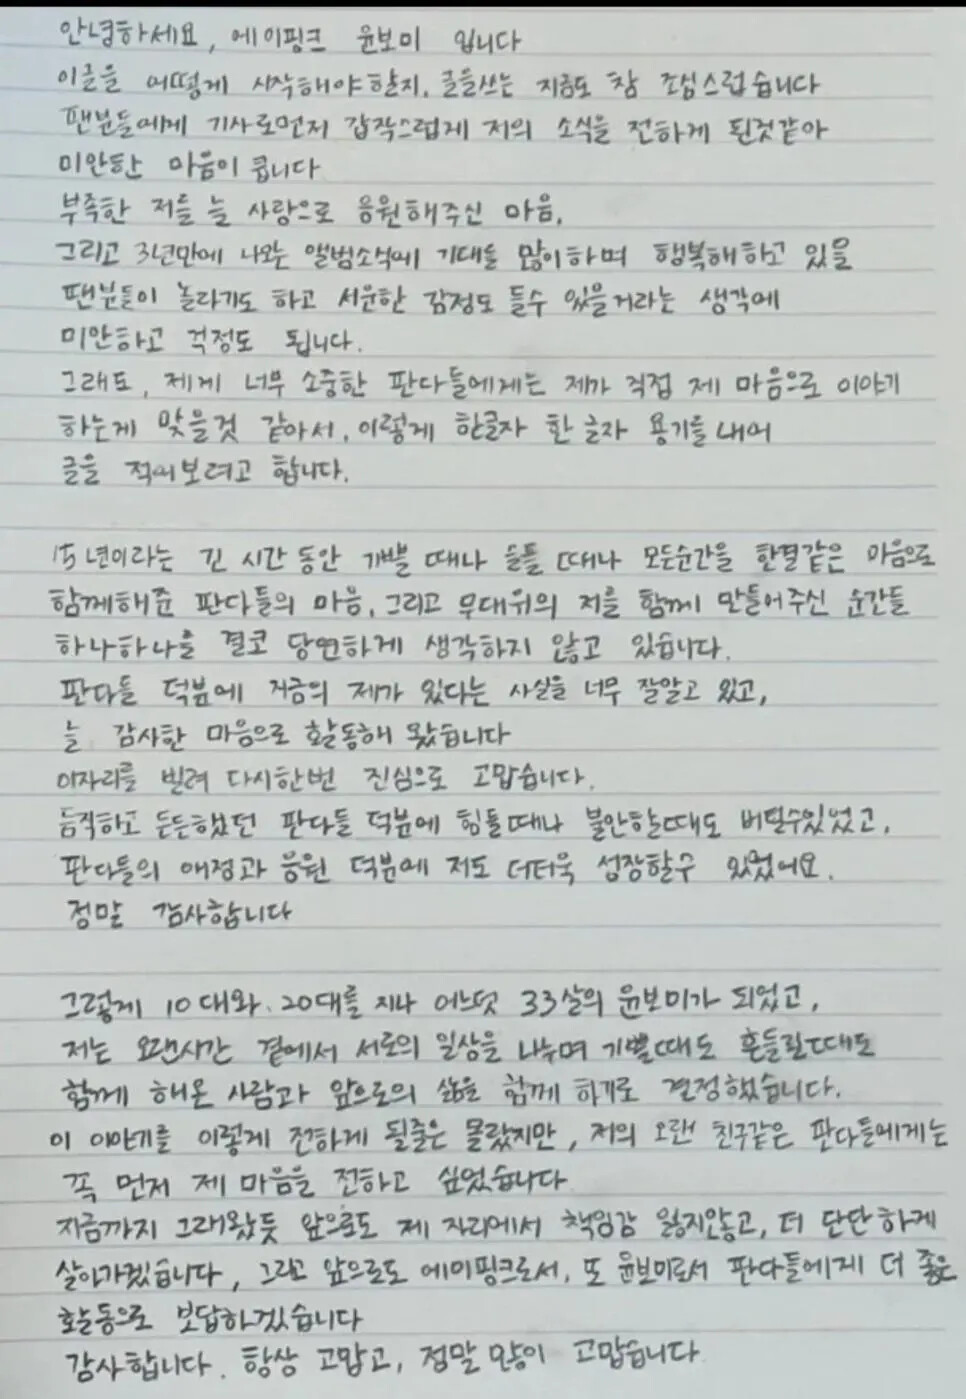 안녕하세요, 에이핑크 윤보미 입니다
이글을 어떻게 시작해야할지, 글을쓰는 지금도 참 조심스럽습니다
팬분들에게 기사로먼저 갑작스럽게 저의 소식을 전하게 된것같아
미안한 마음이 큽니다
부족한 저를 늘 사랑으로 응원해주신 마음,
그리고 3년만에 나오는 앨범소식에 기대를 많이하며 행복해하고 있을
팬분들이 놀라기도 하고 서운한 감정도 들수 있을거라는 생각에
미안하고 걱정도 됩니다.
그래도, 제게 너무 소중한 판다들에게는 제가 직접 제 마음으로 이야기
하는게 맞을것 같아서, 이렇게 한글자 한글자 용기를내어
글을 적어보려고 합니다.
15년이라는 긴 시간동안 기쁠 때나 슬플 때나 모든순간을 한결같은 마음으로
함께해준 판다들의 마음, 그리고 무대위의 저를 함께 만들어주신 순간들
하나하나를 결코 당연하게 생각하지 않고 있습니다.
판다들 덕분에 지금의 제가 있다는 사실을 너무 잘알고 있고,
늘 감사한 마음으로 활동해 왔습니다
이자리를 빌려 다시한번 진심으로 고맙습니다.
듬직하고 든든했던 판다들 덕분에 힘들때나 불안할때도 버틸수있었고,
판다들의 애정과 응원 덕분에 저도 더더욱 성장할수 있었어요.
정말 감사합니다
그렇게 10대와 20대를 지나 어느덧 33살의 윤보미가 되었고,
저는 오랜시간 곁에서 서로의 일상을 나누며 기쁠때도 흔들릴때도
함께 해온 사람과 앞으로의 삶을 함께 하기로 결정했습니다.
이 이야기를 이렇게 전하게 될줄은 몰랐지만, 저의 오랜 친구같은 판다들에게는
꼭 먼저 제 마음을 전하고 싶었습니다
지금까지 그래왔듯 앞으로도 제 자리에서 책임감 잃지않고, 더 단단하게
살아가겠습니다, 그리고 앞으로도 에이핑크로서, 또 윤보미로서 판다들에게 더 좋은
활동으로 보답하겠습니다
감사합니다. 항상 고맙고, 정말 많이 고맙습니다.